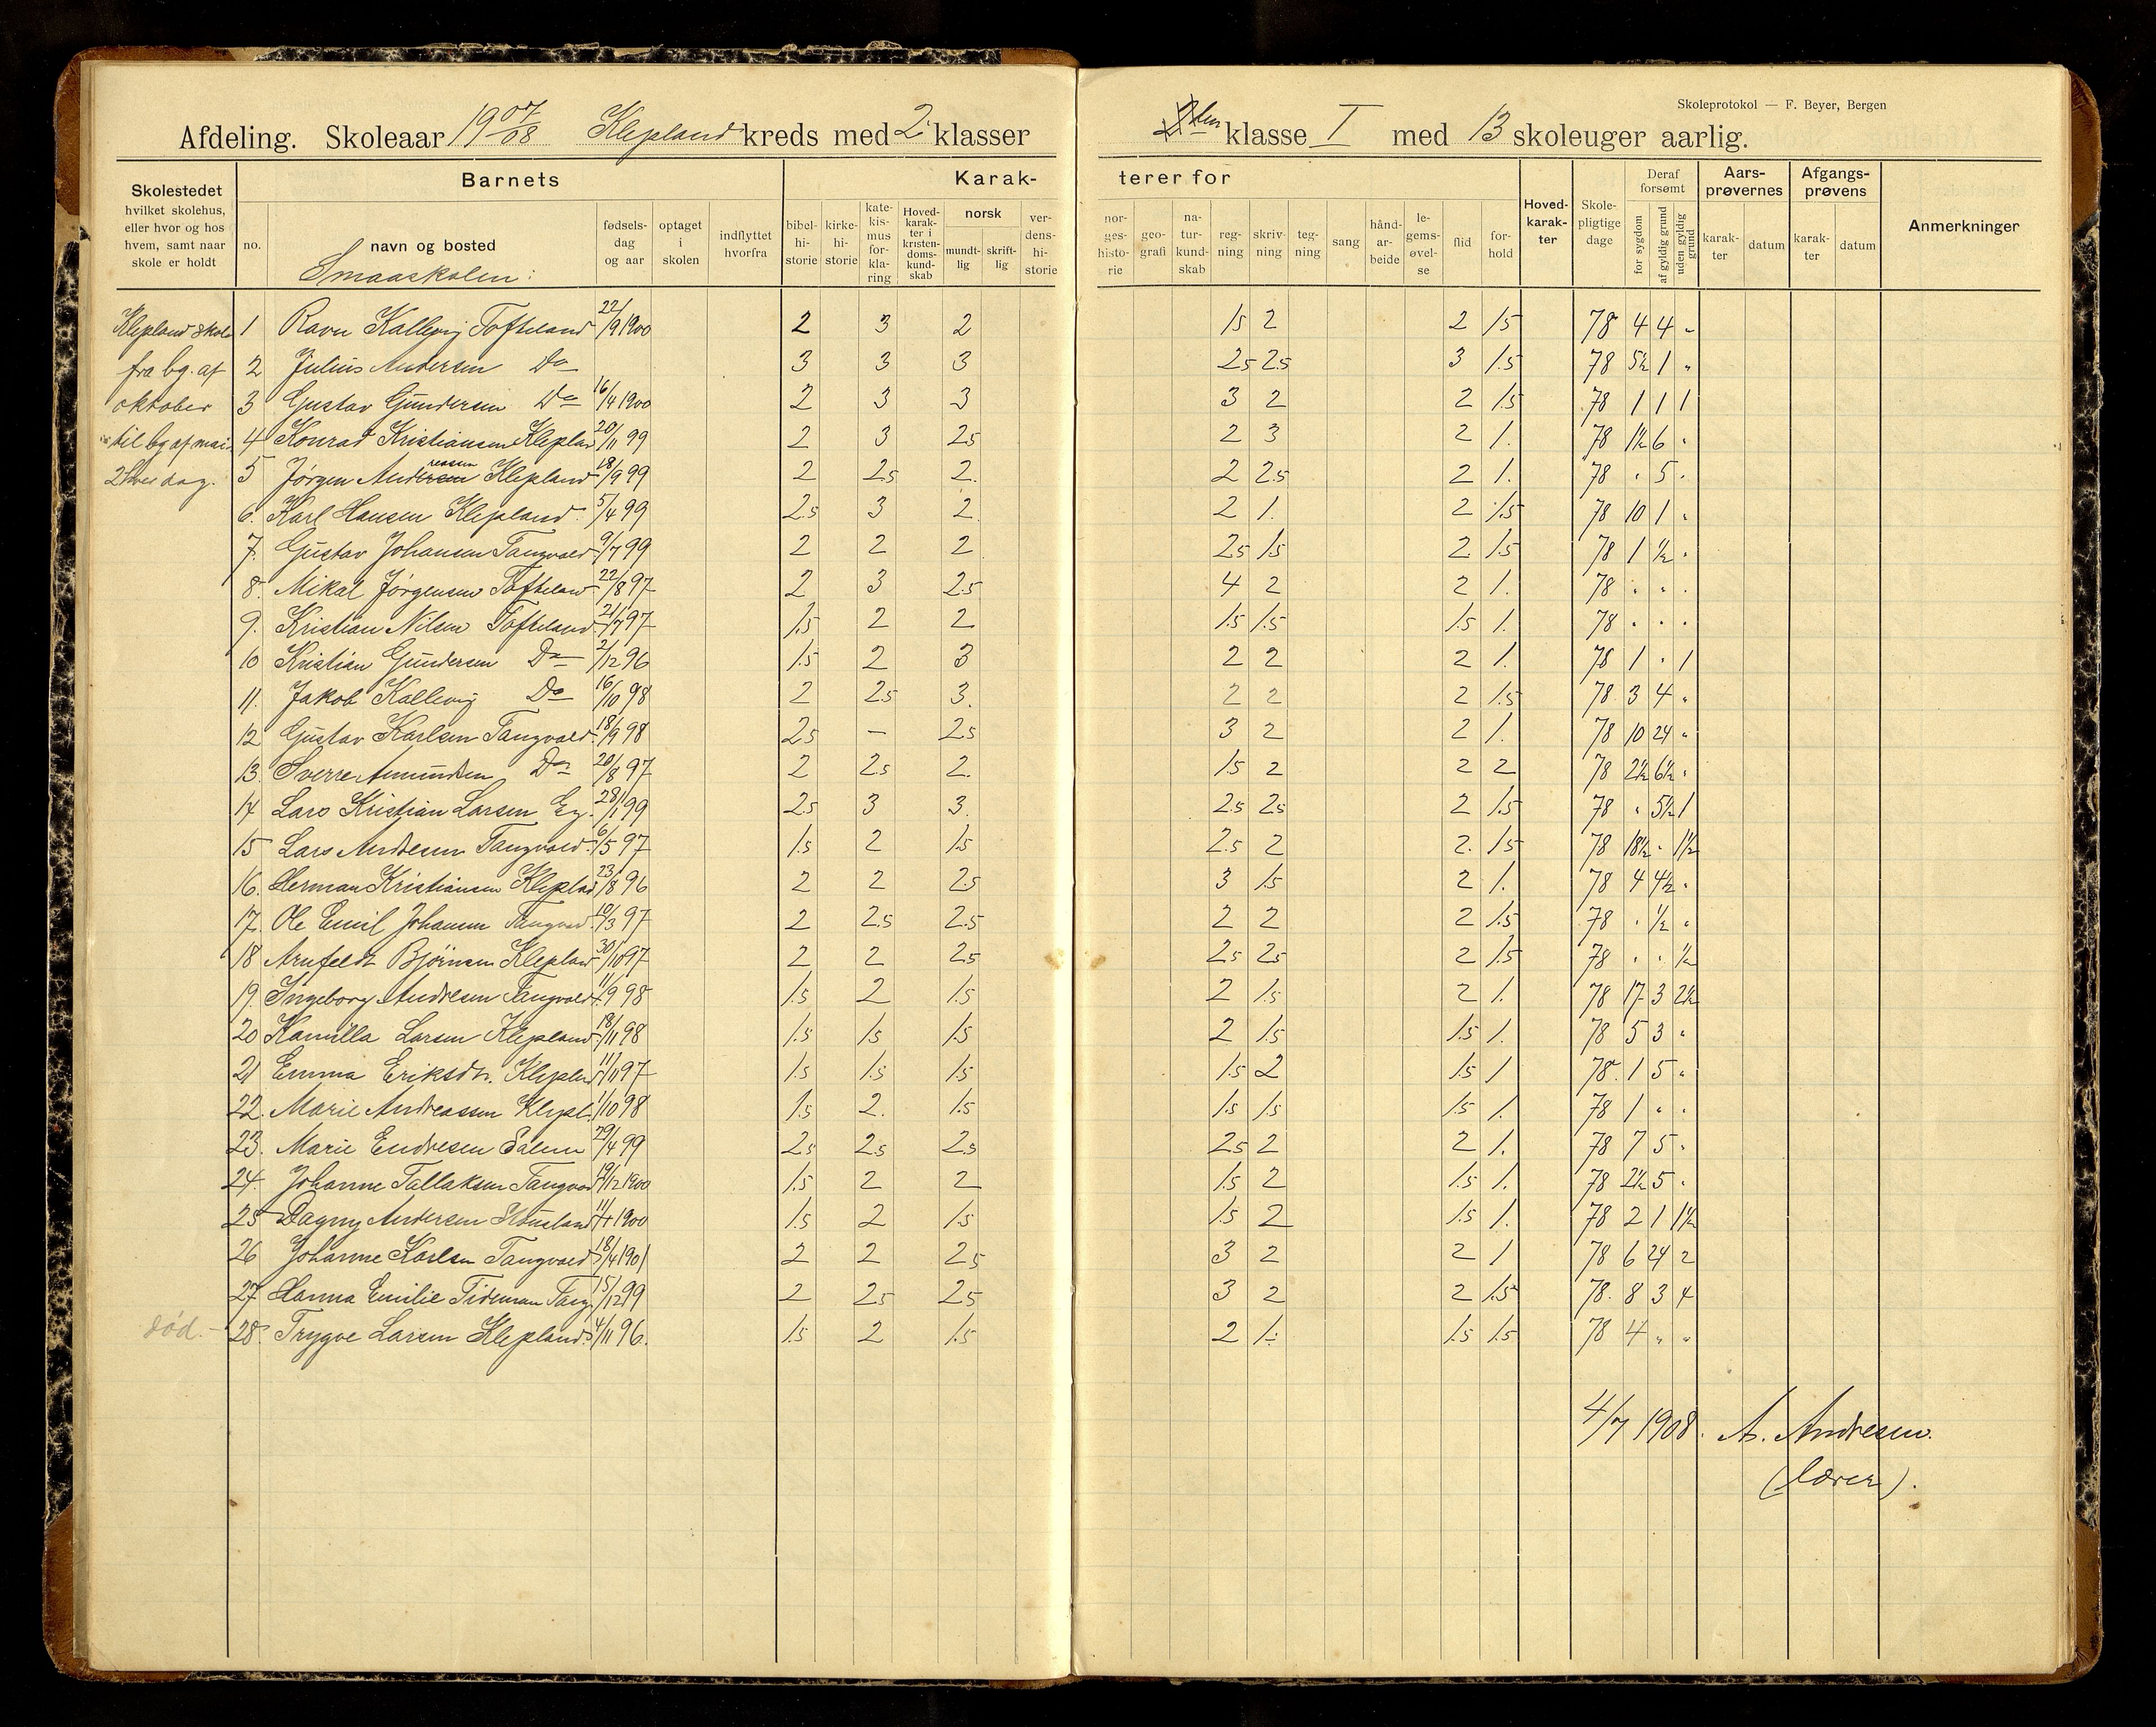 Skoleprotokol — F. Beyer, Bergen
Afdeling. Skoleaar 1907/08 Klepland kreds med 2 klasser klasse I med 13 skoleuger aarlig.
Skolestedet hvilket skolehus, eller hvor og hos hvem, samt naar skole er holdt
Barnets
no. navn og bosted fødselsdag og aar optaget i skolen indflyttet hvorfra
Karakterer for
bibelhistorie kirkehistorie katekismusforklaring Hovedkarakter i kristendomskundskab norsk mundtlig skriftlig verdenshistorie norgeshistorie geografi naturkundskab regning skrivning tegning sang håndarbeide legemsøvelse flid forhold
Hovedkarakter Skolepligtige dage Deraf forsømt for sygdom af gyldig grund uden gyldig grund
Aarsprøvernes karakter datum Afgangsprøvens karakter datum Anmerkninger
Smaaskolen:
Klepland skole 1 Ravn Kallevig Tofteland 22/9 1900 2 3 2 1.5 2 2 1.5 78 4 4 "
fra bg. af 2 Julius Andersen Do 3 3 3 2.5 2.5 3 1.5 78 5½ 1 "
oktober 3 Gustav Gundersen Do 16/4 1900 2 3 3 3 2 2 1.5 78 1 1 1
til bg af mai 4 Konrad Kristiansen Kleplan 20/11 99 2 3 2.5 2 3 2 1. 78 1½ 6 "
2 hver dag. 5 Jørgen Andreasen Klepland 18/9 99 2 2.5 2. 2 2.5 2 1. 78 " 5 "
6. Karl Hansen Klepland 5/4 99 2.5 3 2. 2 1. 2 1.5 78 10 1 "
7. Gustav Johansen Tangvald 9/7 99 2 2 2 2.5 1.5 2 1.5 78 1 ½ "
8. Mikal Jørgensen Tofteland 22/8 97 2 3 2.5 4 2 2 1. 78 " " "
9. Kristian Nilsen Tofteland 21/7 97 1.5 2 2 1.5 1.5 1.5 1. 78 " " "
10 Kristian Gundersen Do 2/12 96 1.5 2 3 2 2 2 1. 78 1 " 1
11. Jakob Kallevig Do 16/10 98 2 2.5 3. 2 2 2 1.5 78 3 4 "
12 Gustav Karlsen Tangvald 18/9 98 2.5 – 2.5 3 2 2 1. 78 10 24 "
13. Sverre Amundsen Do 20/8 97 2 2.5 2. 1.5 2 2 2 78 2½ 6½ "
14 Lars Kristian Larsen Eg. 28/1 99 2.5 3 3. 2.5 2.5 2 1.5 78 " 5½ 1
15 Lars Andresen Tangvald 6/5 97 1.5 2 1.5 2.5 2 2. 1.5 78 18½ " 1½
16. Herman Kristiansen Kleplad 23/8 96 2 2 2.5 3 1.5 2 1. 78 4 4½ "
17. Ole Emil Johansen Tangvad 10/3 97 2 2.5 2.5 2 2 2 1.5 78 " ½ "
18 Arnfeldt Bjørnsen Klepland 30/10 97 2 2 2.5 2.5 2.5 2 1.5 78 " " ½
19. Ingeborg Andresen Tangvald 11/9 98 1.5 2 1.5 2 1.5 2 1. 78 17 3 2½
20 Kamilla Larsen Klepland 18/11 98 1.5 1.5 1.5 2 1.5 1.5 1. 78 5 3 "
21 Emma Eriksdtr. Klepland 11/11 97 1.5 1.5 1.5 1.5 2 1.5 1 78. 1 5 "
22. Marie Andreassen Klepl. 1/10 98 1.5 2. 1.5 1.5 1.5 1.5 1. 78 1 " "
23. Marie Endresen Salem 29/4 99 2.5 2.5 2.5 2.5 2 2 1. 78 7 5 "
24. Johanne Tallaksen Tangvad 19/12 1900 1.5 2 2 1.5 2 1.5 1. 78 2½ 5 "
25 Dagny Andersen 11/4 1900 1.5 2 1.5 1.5 2 1.5 1. 78 2 1 1½
26 Johanne Karlsen Tangvald 18/4 1901 2 2 2.5 3 2 2 1 78 6 24 2
27 Hanna Emilie Tideman Tang. 15/12 99 2 2.5 2.5 3 2 2 1.5 78. 8 3 4
død. – 28. Trygve Larsen Klepland 4/11 96. 1.5 2 1.5 2 1. 1.5 1.5 78 4 " "
4/7 1908. A. Andresen.
(lærer).